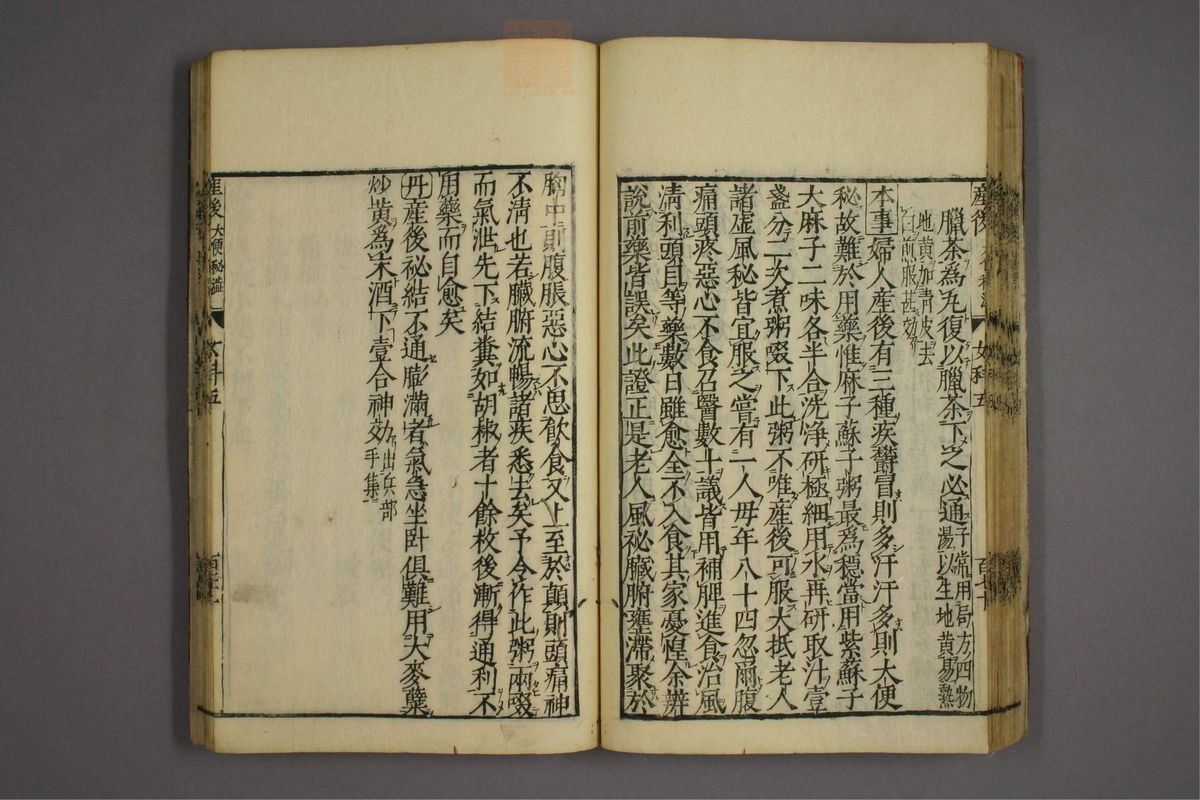 産後 女科五 百七十
臘茶爲丸復以臘茶下之必通子常用局方四物湯以生地黄易熟
地黄加青皮去白前服甚効
本事婦人産後有三種疾欝冒則多汗汗多則大便
秘故難於用藥惟麻子蘇子粥最爲穩當用紫蘇子
大麻子二味各半合洗淨研極細用水再研取汁壹
盞分二次煮粥啜下此粥不唯産後可服大抵老人
諸虚風秘皆宜服之嘗有一人母年八十四忽爾腹
痛頭疼惡心不食召醫數十議皆用補脾進食治風
清利頭目等藥數日雖愈全不入食其家憂惶余辨
説前藥皆誤矣此證正是老人風祕臓腑壅滯聚於
胸中則腹脹惡心不思飲食又上至於顛則頭痛神
不清也若臓腑流暢諸疾悉去矣予令作此粥兩啜
而氣泄先下結糞如胡椒者十餘枚後漸得通利不
用藥而自愈矣
丹産後祕結不通膨滿者氣急坐卧俱難用大麥蘖
炒黄爲末酒下壹合神効出兵部手集
産後大便秘澁 女科五